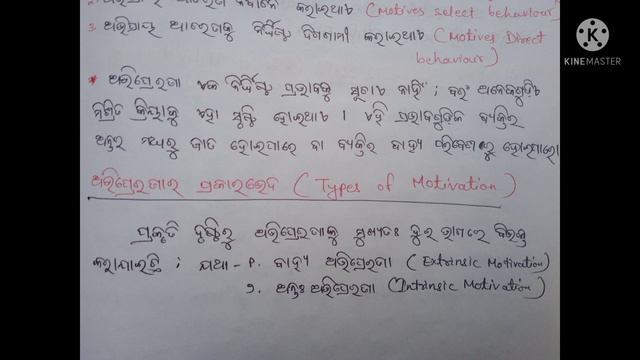 ଅଭିପ୍ରାୟ କରାଇଥାଏ (Motives select behaviour)
3. ଅଭିପ୍ରାୟ ଆଚରଣକୁ ନିର୍ଦ୍ଦିଷ୍ଟ ଦିଗଗାମୀ କରାଇଥାଏ (Motives Direct
behaviour)
KINEMASTER
* ଅଭିପ୍ରେରଣା ଏକ ନିର୍ଦ୍ଦିଷ୍ଟ ପ୍ରଭାବକୁ ସୂଚାଏ ନାହିଁ ; ବରଂ ଅନେକଗୁଡ଼ିଏ
ମିଶ୍ରିତ କ୍ରିୟାକୁ ଏହା ସୃଷ୍ଟି ହୋଇଥାଏ । ଏହି ପ୍ରଭାବଗୁଡିକ ବ୍ୟକ୍ତିର
ଅନ୍ତର ମଧ୍ୟରୁ ଜାତ ହୋଇପାରେ ବା ବ୍ୟକ୍ତିର ବାହ୍ୟ ପରିବେଶରୁ ହୋଇପାରେ।
ଅଭିପ୍ରେରଣାର ପ୍ରକାରଭେଦ (Types of Motivation)
ପ୍ରକୃତି ଦୃଷ୍ଟିରୁ ଅଭିପ୍ରେରଣାକୁ ମୁଖ୍ୟତଃ ଦୁଇ ଭାଗରେ ବିଭକ୍ତ
କରାଯାଇଛି ; ଯଥା - ୧. ବାହ୍ୟ ଅଭିପ୍ରେରଣା (Extrinsic Motivation)
୨. ଅନ୍ତଃ ଅଭିପ୍ରେରଣା (Intrinsic Motivation)